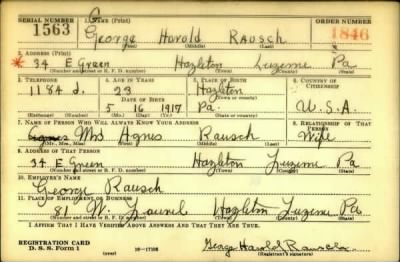 SERIAL NUMBER 1. NAME (Print) ORDER NUMBER
1563 George Harold Rausch 1846
(First) (Middle) (Last)
2. ADDRESS (Print)
* 34 E Green Hazleton Luzerne Pa
(Number and street or R. F. D. number) (Town) (County) (State)
3. TELEPHONE 4. AGE IN YEARS 5. PLACE OF BIRTH 6. COUNTRY OF CITIZENSHIP
1184 J. 23 Hazleton
DATE OF BIRTH (Town or county)
5 16 1917 Pa. U.S.A.
(Exchange) (Number) (Mo.) (Day) (Yr.) (State or country)
7. NAME OF PERSON WHO WILL ALWAYS KNOW YOUR ADDRESS 8. RELATIONSHIP OF THAT PERSON
Agnes Mrs Agnes Rausch Wife
(Mr., Mrs., Miss) (First) (Middle) (Last)
9. ADDRESS OF THAT PERSON
34 E Green Hazleton Luzerne Pa
(Number and street or R. F. D. number) (Town) (County) (State)
10. EMPLOYER'S NAME
George Rausch
11. PLACE OF EMPLOYMENT OR BUSINESS
81 W. Laurel Hazleton Luzerne Pa
(Number and street or R. F. D. number) (Town) (County) (State)
I AFFIRM THAT I HAVE VERIFIED ABOVE ANSWERS AND THAT THEY ARE TRUE.
REGISTRATION CARD
D. S. S. Form 1 16—17105 George Harold Rausch
(over) (Registrant's signature)